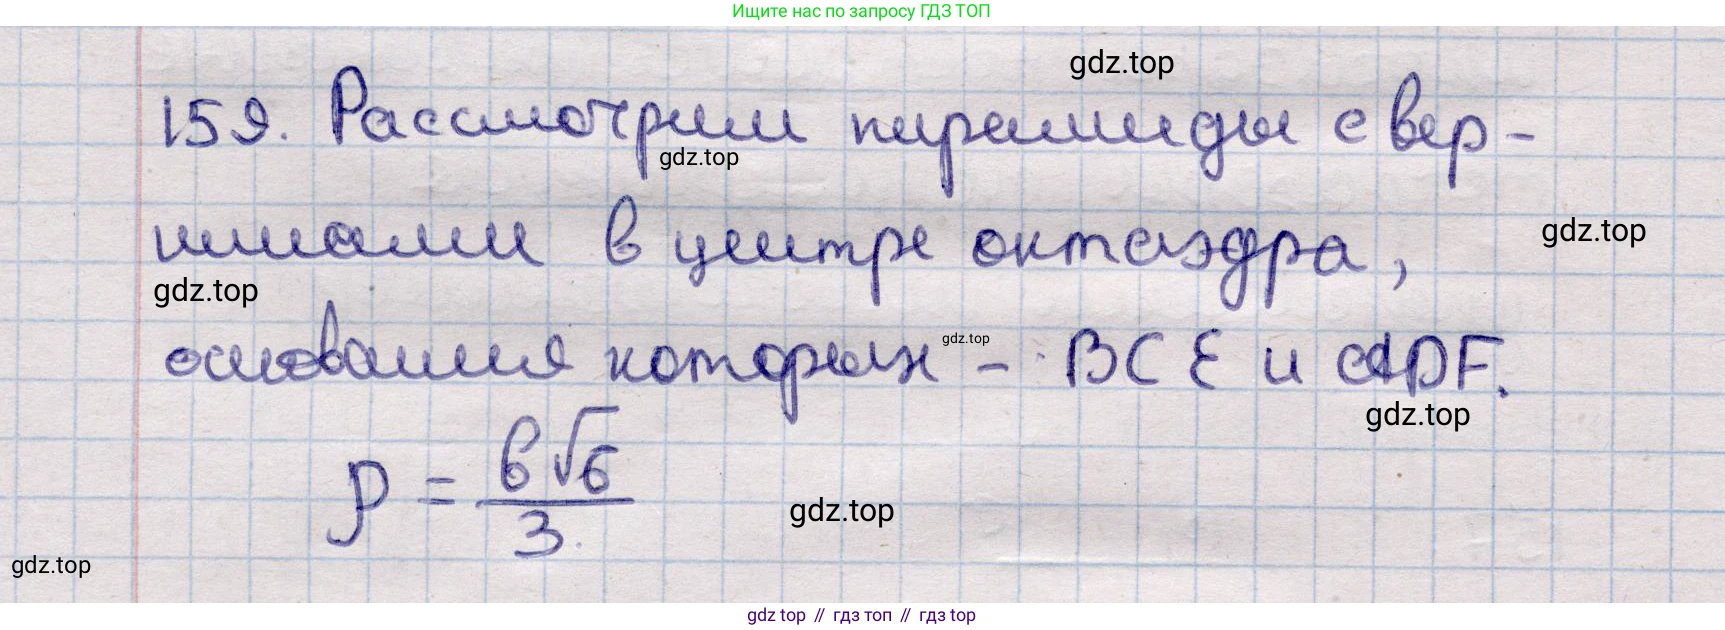 Ищите нас по запросу ГДЗ ТОП
gdz.top
159. Рассмотрим пирамиды с вер-
gdz.top
шинами в центре октаэдра,
gdz.top
gdz.top
основания которых - BCE и ADF.
gdz.top
gdz.top
ρ = б√6 / 3.
gdz.top
gdz.top
gdz top // гдз топ // gdz top